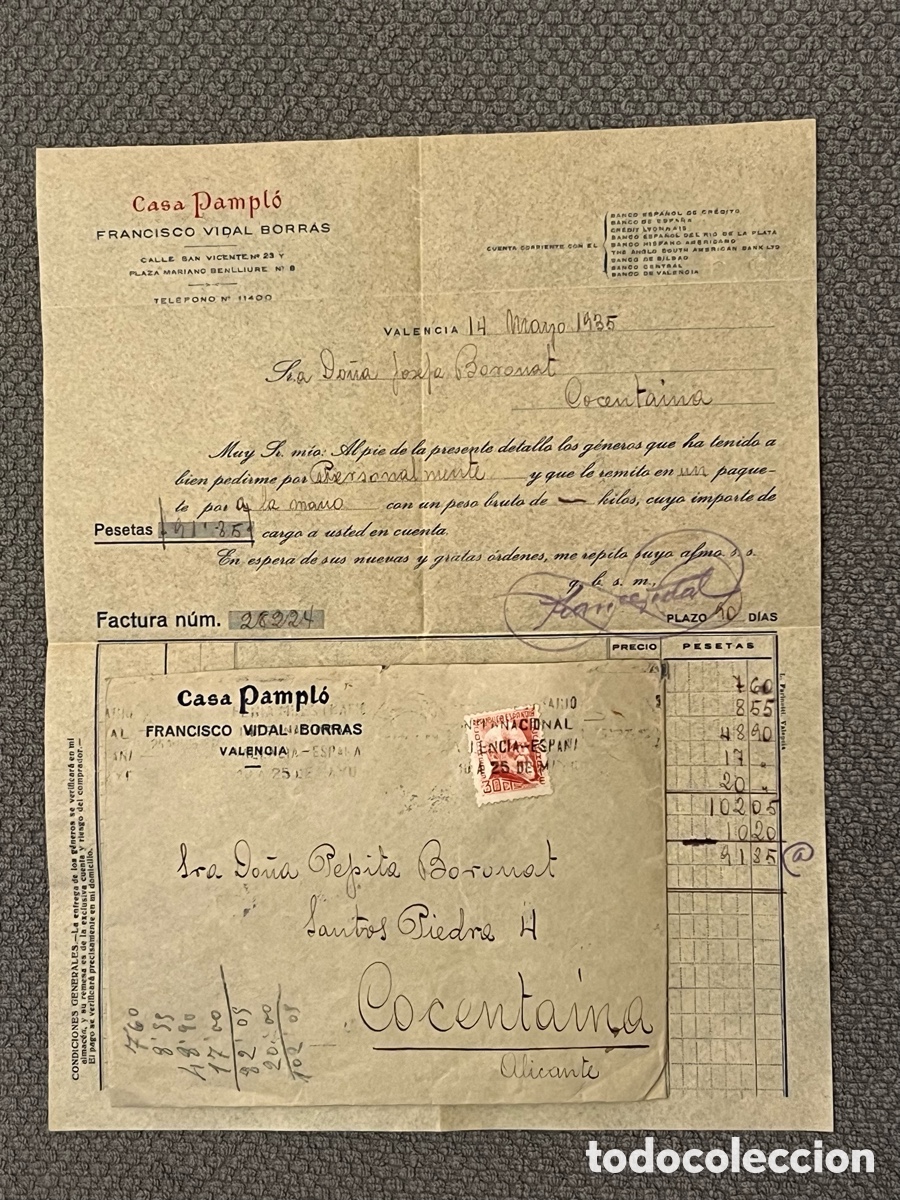 Casa Pampló
FRANCISCO VIDAL BORRÁS
CALLE SAN VICENTE, Nº 23 Y
PLAZA MARIANO BENLLIURE Nº 8
TELÉFONO Nº 11400
CUENTA CORRIENTE CON EL
BANCO ESPAÑOL DE CRÉDITO
BANCO DE ESPAÑA
CRÉDIT LYONNAIS
BANCO ESPAÑOL DEL RIO DE LA PLATA
BANCO HISPANO AMERICANO
THE ANGLO SOUTH AMERICAN BANK LTD
BANCO DE BILBAO
BANCO CENTRAL
BANCO DE VALENCIA
VALENCIA 14 Mayo 1935
Sra Doña Josefa Boronat
Cocentaina
Muy Sr. mío: Al pie de la presente detallo los géneros que ha tenido a
bien pedirme por Personalmente y que le remito en un paque-
te por a la mano con un peso bruto de — kilos, cuyo importe de
Pesetas 91'85 cargo a usted en cuenta.
En espera de sus nuevas y gratas órdenes, me repito suyo afmo. s. s.
q. b. s. m.,
Factura núm. 28224
PLAZO 90 DÍAS
PRECIO PESETAS
7 60
8 55
48 90
17 "
20 "
102 05
10 20
91 85
L. Perinat. Valencia
CONDICIONES GENERALES.—La entrega de los géneros se verificará en mi
almacén, y su remesa es de la exclusiva cuenta y riesgo del comprador.—
El pago se verificará precisamente en mi domicilio.
Casa Pampló
FRANCISCO VIDAL BORRÁS
VALENCIA
NACIONAL
ENCIA-ESPAÑA
A 25 DE M
30
Sra Doña Pepita Boronat
Santos Piedra 4
Cocentaina
Alicante
7 60
8'55
48'90
17'00
82'05
20'00
102'05
todocoleccion